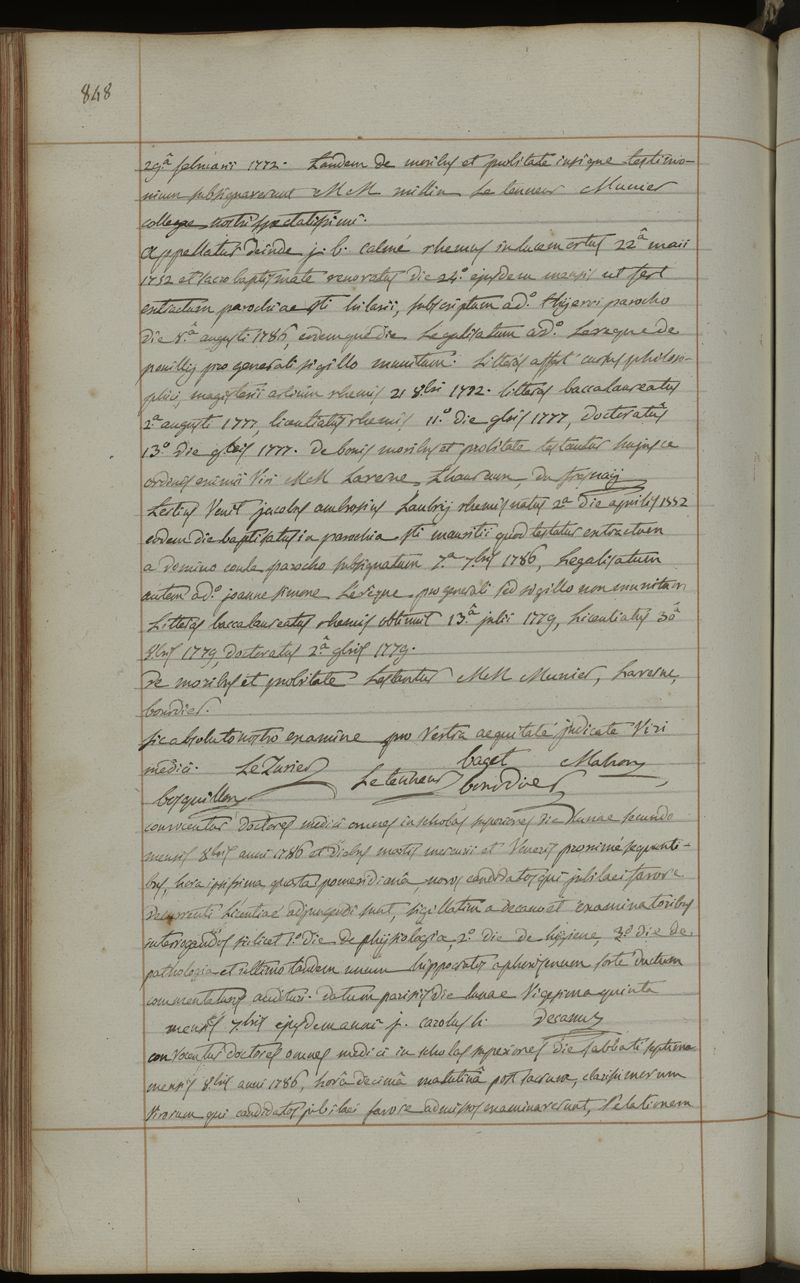 848
29.ª februarii 1772. tandem de moribus et probitate insigne testimo-
nium subsignaverunt MM millin Le tenneur Munier
collegae nostri spectatissimi.
appellatus deinde j. b. calmé rhemus in lucem ortus 22ª maii
1752 et sacro baptismate renovatus die 24.º ejusdem mensis ut fert
extractum parochiae sti hilarii, subscriptum a d.º parocho
die 8.ª augusti 1786, eodemque die Legalisatum a d.º de
pouilly pro generali sigillo munitum. Litteras affert cursus philoso-
phici, magisterii artium rhemis 21 8bri 1772. litteras baccalaureatus
2ª augusti 1777, licentiatus rhemis 11.º die 9bris 1777, doctoratus
13.º die 9bris 1777. de bonis moribus et probitate testantur hujusce
ordinis eximii Viri MM Laverne, du fresnay
tertius Venit jacobus ambrosius rhemis natus 2.ª die aprilis 1752
eodem die baptisatus in parochia sti mauritii quod testatur extractum
a domino parocho subsignatum 7.ª 7bris 1786, Legalisatum
autem a d.º joanne simone Lévêque pro generali sed sigillo non munitum
Litteras baccalaureatus rhemis obtinuit 13.ª julii 1779, Licentiatus 30ª
8bris 1779, doctoratus 2.ª 9bris 1779.
De moribus et probitate testantur MM Munier, Laverne,
bourdier.
sic absoluto nostro examine pro Vestra aequitate judicate Viri
medici. Le Letenneur baget bourdier Mahon
bosquillon
convocentur doctores medici omnes in scholas superiores die Lunae secundo
mensis 8bris anni 1786 et diebus martis mercurii et Veneris proximé sequenti-
bus, hora ipsissima quarta pomeridiana, novos candidatos qui jubilaei favore
decurrenti licentiae adjungendi sunt, sigillatim a decano et examinatoribus
interrogandos scilicet 1.º die de physiologia, 2.º die de hygiene, 3.º die de
pathologia et ultimo tandem unum hippocratis aphorismum sorte ductum
commentatores audituri. datum parisiis die lunae Vigesima quinta
mensis 7bris ejusdem anni j. carolus h. Decanus
convocentur doctores omnes medici in scholas superiores die sabbati septima
mensis 8bris anni 1786, horâ decimâ matutinâ post sacrum, clarissimorum
Virorum qui candidatos jubilaei favore admissos examinaverunt, Relationem